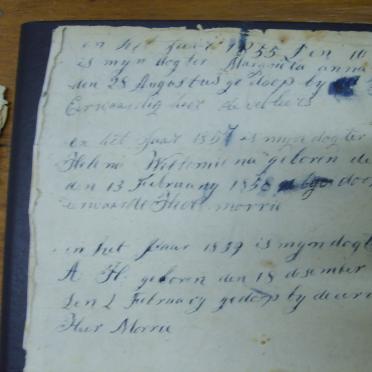 en het Jaar 1855 Den 10
is myn dogter Margrita anna
den 28 Augustus gedoop by
Eerwaardig heer
en het Jaar 1857 is myn dogter
Helena Wellemie na geboren de
den 13 February 1858 doo
erwaarde Heer morrie
en het Jaar 1859 is myn dogt
A H. geboren den 18 desember
den 2 February gedoop by de eerw
Heer Morrie